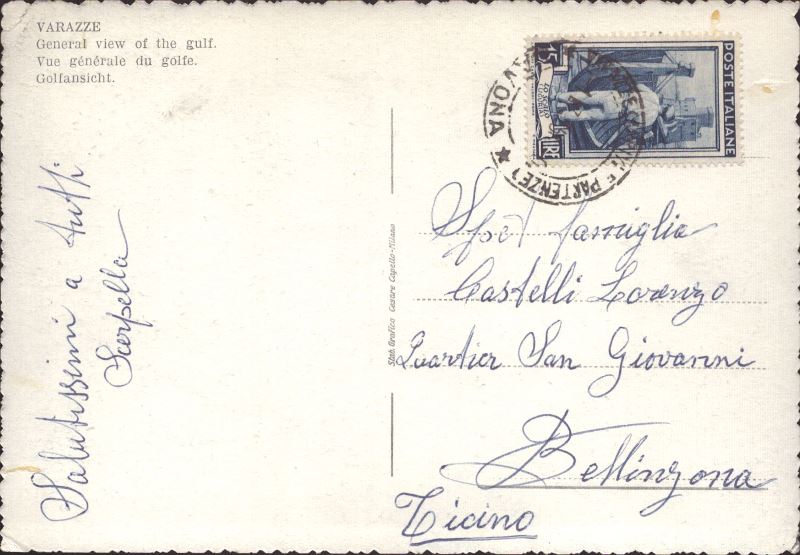 VARAZZE
General view of the gulf.
Vue générale du golfe.
Golfansicht.
Salutissimi a tutti
Scarpella
Stab. Grafico Cesare Capello - Milano
15
LIRE
POSTE ITALIANE
SAVONA
PARTENZE)
Spet famiglia
Castelli Lorenzo
Quartier San Giovanni
Bellinzona
Ticino